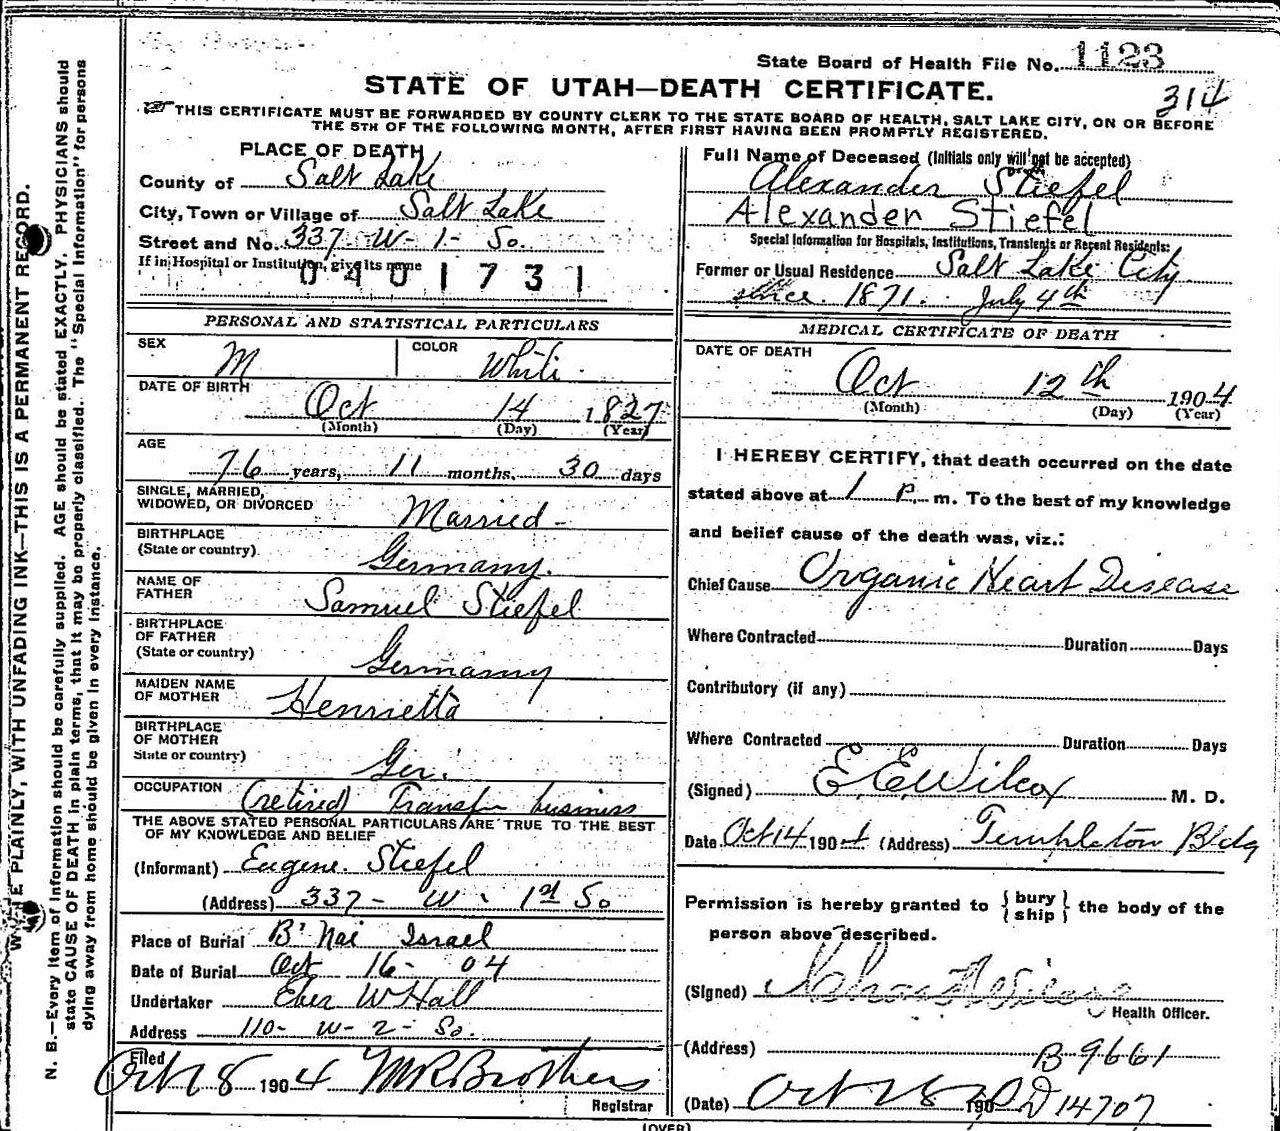 State Board of Health File No. 1123
STATE OF UTAH—DEATH CERTIFICATE.
314
THIS CERTIFICATE MUST BE FORWARDED BY COUNTY CLERK TO THE STATE BOARD OF HEALTH, SALT LAKE CITY, ON OR BEFORE
THE 5TH OF THE FOLLOWING MONTH, AFTER FIRST HAVING BEEN PROMPTLY REGISTERED.
PLACE OF DEATH
County of Salt Lake
City, Town or Village of Salt Lake
Street and No. 337 W-1- So.
If in Hospital or Institution, give its name
0401731
PERSONAL AND STATISTICAL PARTICULARS
SEX M COLOR White
DATE OF BIRTH
Oct 14 1827
(Month) (Day) (Year)
AGE
76 years, 11 months, 30 days
SINGLE, MARRIED,
WIDOWED, OR DIVORCED Married
BIRTHPLACE
(State or country) Germany.
NAME OF
FATHER Samuel Stiefel
BIRTHPLACE
OF FATHER
(State or country) Germany
MAIDEN NAME
OF MOTHER Henrietta
BIRTHPLACE
OF MOTHER
State or country) Ger.
OCCUPATION (retired) Transfer business
THE ABOVE STATED PERSONAL PARTICULARS ARE TRUE TO THE BEST
OF MY KNOWLEDGE AND BELIEF
(Informant) Eugene Stiefel
(Address) 337- W. 1st So
Place of Burial B'Nai Israel
Date of Burial Oct 16- 04
Undertaker Eber W Hall
Address 110- W-2- So.
Filed
Oct 18 1904 M R Brothers
Registrar
Full Name of Deceased (Initials only will not be accepted)
Alexander Stiefel
Alexander Stiefel
Special Information for Hospitals, Institutions, Transients or Recent Residents:
Former or Usual Residence Salt Lake City
since 1871. July 4th
MEDICAL CERTIFICATE OF DEATH
DATE OF DEATH
Oct 12th 1904
(Month) (Day) (Year)
I HEREBY CERTIFY, that death occurred on the date
stated above at 1 P. m. To the best of my knowledge
and belief cause of the death was, viz.:
Chief Cause Organic Heart Disease
Where Contracted Duration Days
Contributory (if any)
Where Contracted Duration Days
(Signed) E E Wilcox M. D.
Date Oct 14 1904 (Address) Templeton Bldg
Permission is hereby granted to { bury
ship } the body of the
person above described.
(Signed)
Health Officer.
(Address) B-9661
(Date) Oct 190 D 14707
(OVER)
WRITE PLAINLY, WITH UNFADING INK—THIS IS A PERMANENT RECORD.
N. B.—Every item of information should be carefully supplied. AGE should be stated EXACTLY. PHYSICIANS should
state CAUSE OF DEATH in plain terms, that it may be properly classified. The "Special Information" for persons
dying away from home should be given in every instance.